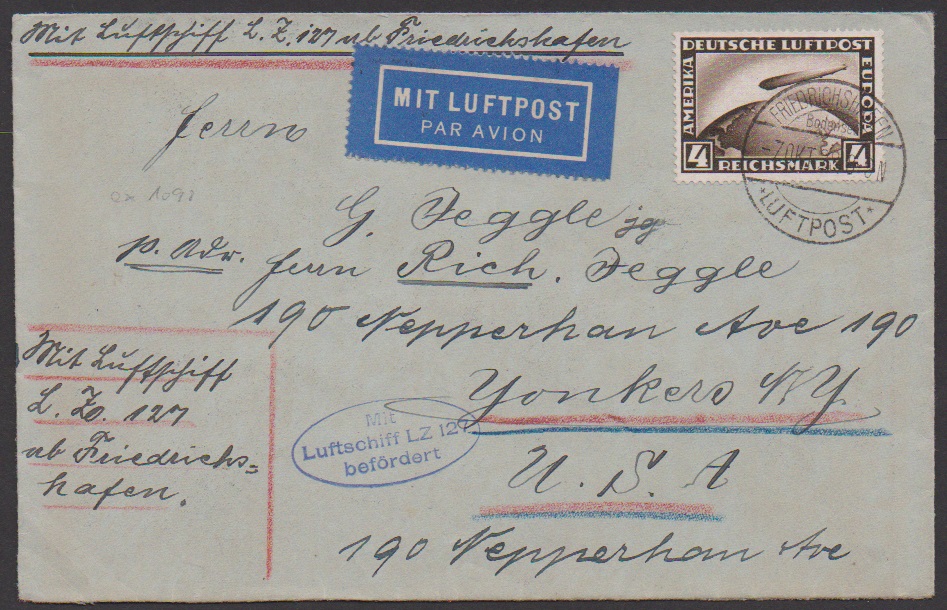 Mit Luftschiff L. Z. 127 ab Friedrichshafen
MIT LUFTPOST
PAR AVION
DEUTSCHE LUFTPOST
AMERIKA
EUROPA
4 REICHSMARK 4
FRIEDRICHSHAFEN
Bodensee
-7.OKT
*LUFTPOST*
Herrn
ex 1098
G. Feggle jg
p. Adr. Herrn Rich. Feggle
190 Nepperhan Ave 190
Yonkers N.Y.
U. S. A
190 Nepperhan Ave
Mit Luftschiff
L. Z. 127
ab Friedrichs=
hafen.
Mit
Luftschiff LZ 127
befördert